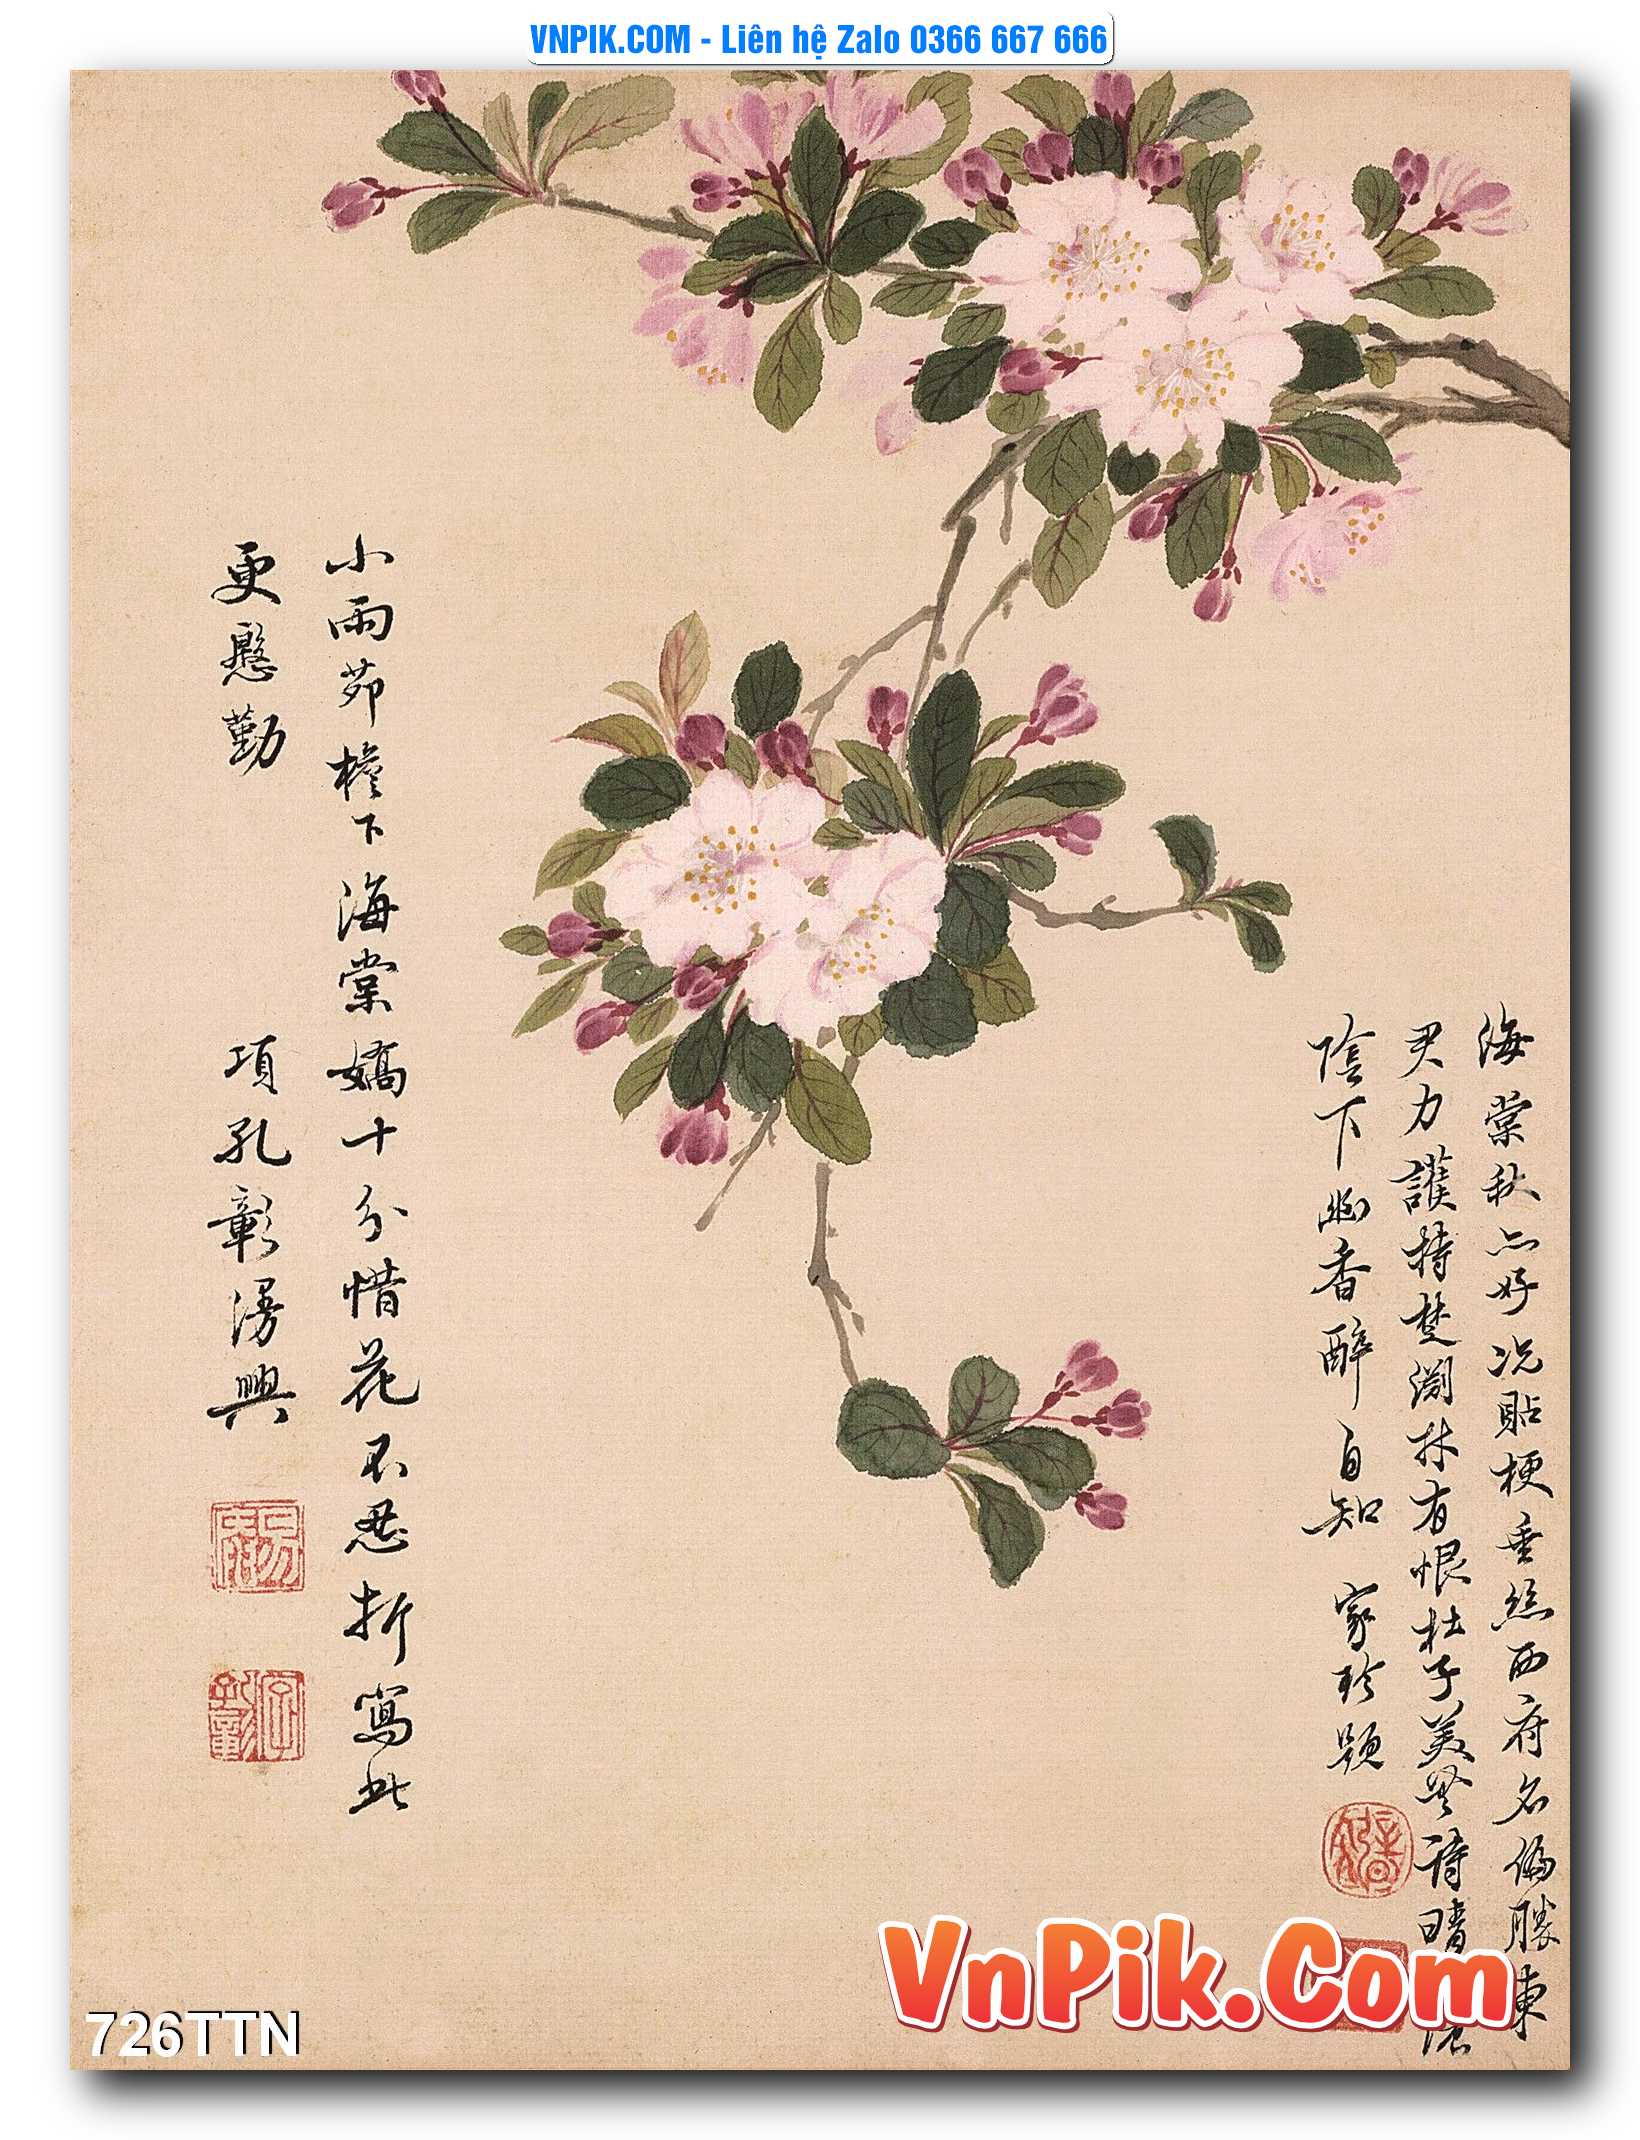 VNPIK.COM - Liên hệ Zalo 0366 667 666
海棠秋亦好況貼梗垂絲西府名偏勝東
君力護持楚淵林有恨杜子美無詩晴
陰下幽香醉自知 家珍題
小雨茆檐下海棠嬌十分惜花不忍折寫此
更慇勤
項孔彰漫興
VnPik.Com
726TTN